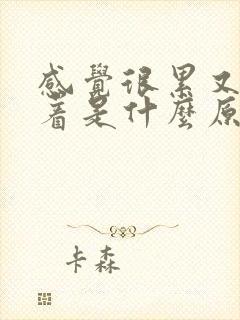 感覺很累又
著是什麼原
卡森